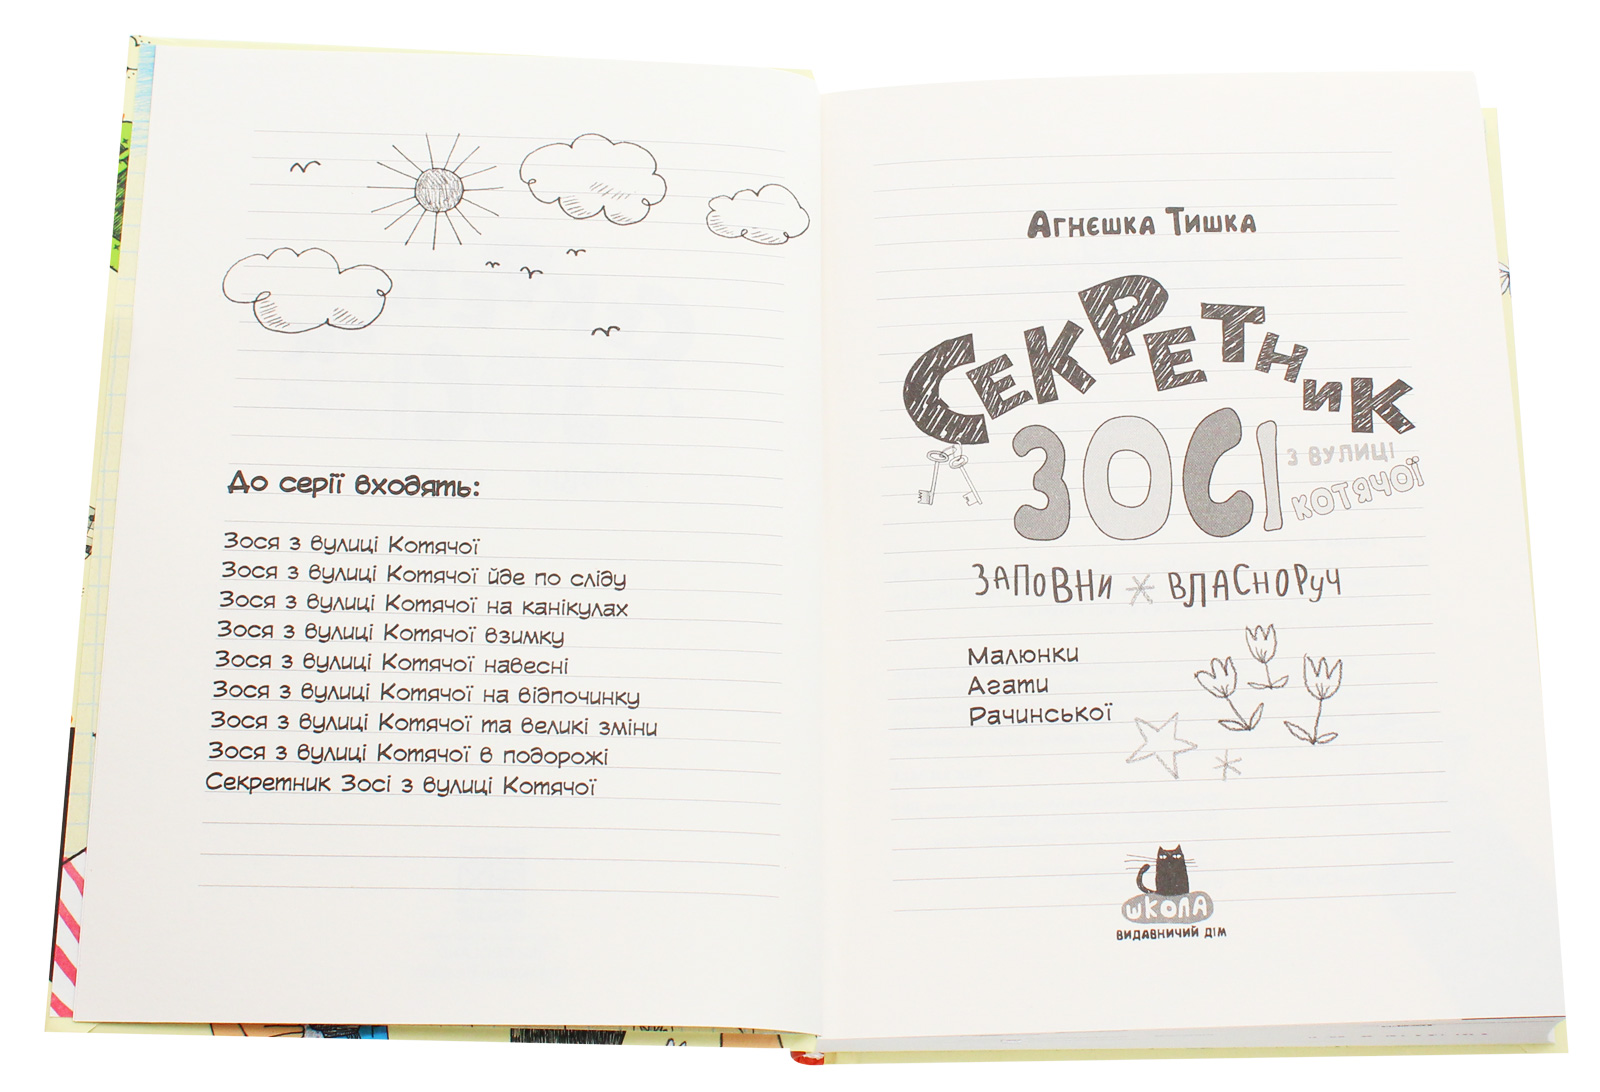 До серії входять:
Зося з вулиці Котячої
Зося з вулиці Котячої йде по сліду
Зося з вулиці Котячої на канікулах
Зося з вулиці Котячої взимку
Зося з вулиці Котячої навесні
Зося з вулиці Котячої на відпочинку
Зося з вулиці Котячої та великі зміни
Зося з вулиці Котячої в подорожі
Секретник Зосі з вулиці Котячої
Агнєшка Тишка
Секретник
Зосі
з вулиці
Котячої
Заповни * власноруч
Малюнки
Агати
Рачинської
школа
видавничий дім